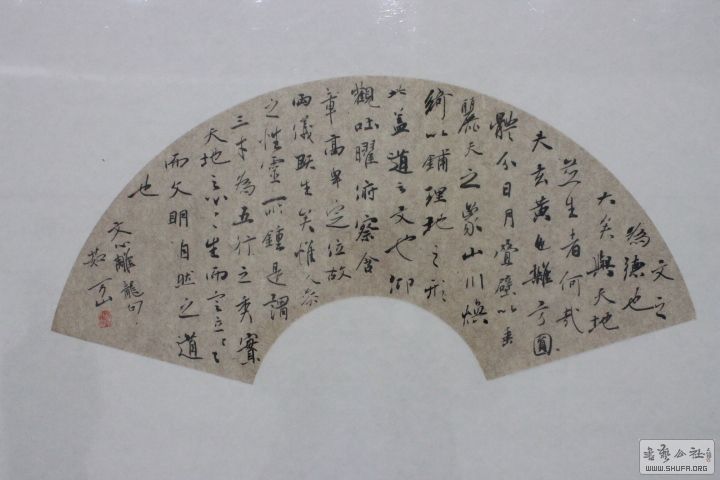 文之
為德也
大矣與天地
並生者何哉
夫玄黃色雜方圓
體分日月疊璧以垂
麗天之象山川煥
綺以鋪理地之形
此蓋道之文也仰
觀吐曜俯察含
章高卑定位故
兩儀既生矣惟人参
之性靈所鍾是謂
三才為五行之秀實
天地之心〻生而言立〻〻
而文明自然之道
也
文心雕龍句
書藝公社
WWW.SHUFA.ORG